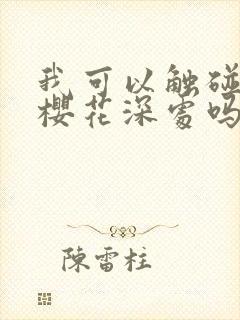 我可以触碰
樱花深处吗
陳雷柱